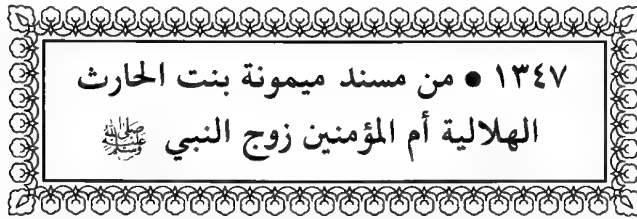 ١٣٤٧ ● من مسند ميمونة بنت الحارث
الهلالية أم المؤمنين زوج النبي ﷺ